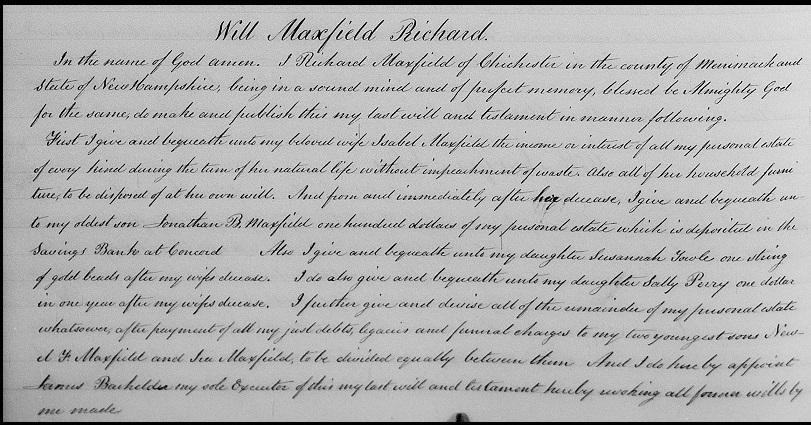 Will Maxfield Richard.
In the name of God amen. I Richard Maxfield of Chichester in the county of Merrimack and
State of New Hampshire, being in a sound mind and of perfect memory, blessed be Almighty God
for the same, do make and publish this my last will and testament in manner following.
First I give and bequeath unto my beloved wife Isabel Maxfield the income or interest of all my personal estate
of every kind during the term of her natural life without impeachment of waste. Also all of her household furni
ture, to be disposed of at her own will. And from and immediately after her decease, I give and bequeath un-
to my oldest son Jonathan B. Maxfield one hundred dollars of my personal estate which is deposited in the
Savings Bank at Concord Also I give and bequeath unto my daughter Susannah Towle one string
of gold beads after my wifes decease. I do also give and bequeath unto my daughter Sally Perry one dollar
in one year after my wifes decease. I further give and devise all of the remainder of my personal estate
whatsoever, after payment of all my just debts, legacies and funeral charges to my two youngest sons New-
F. Maxfield and Ira Maxfield, to be divided equally between them And I do hereby appoint
James Bachelder my sole Executor of this my last will and testament hereby revoking all former wills by
me made